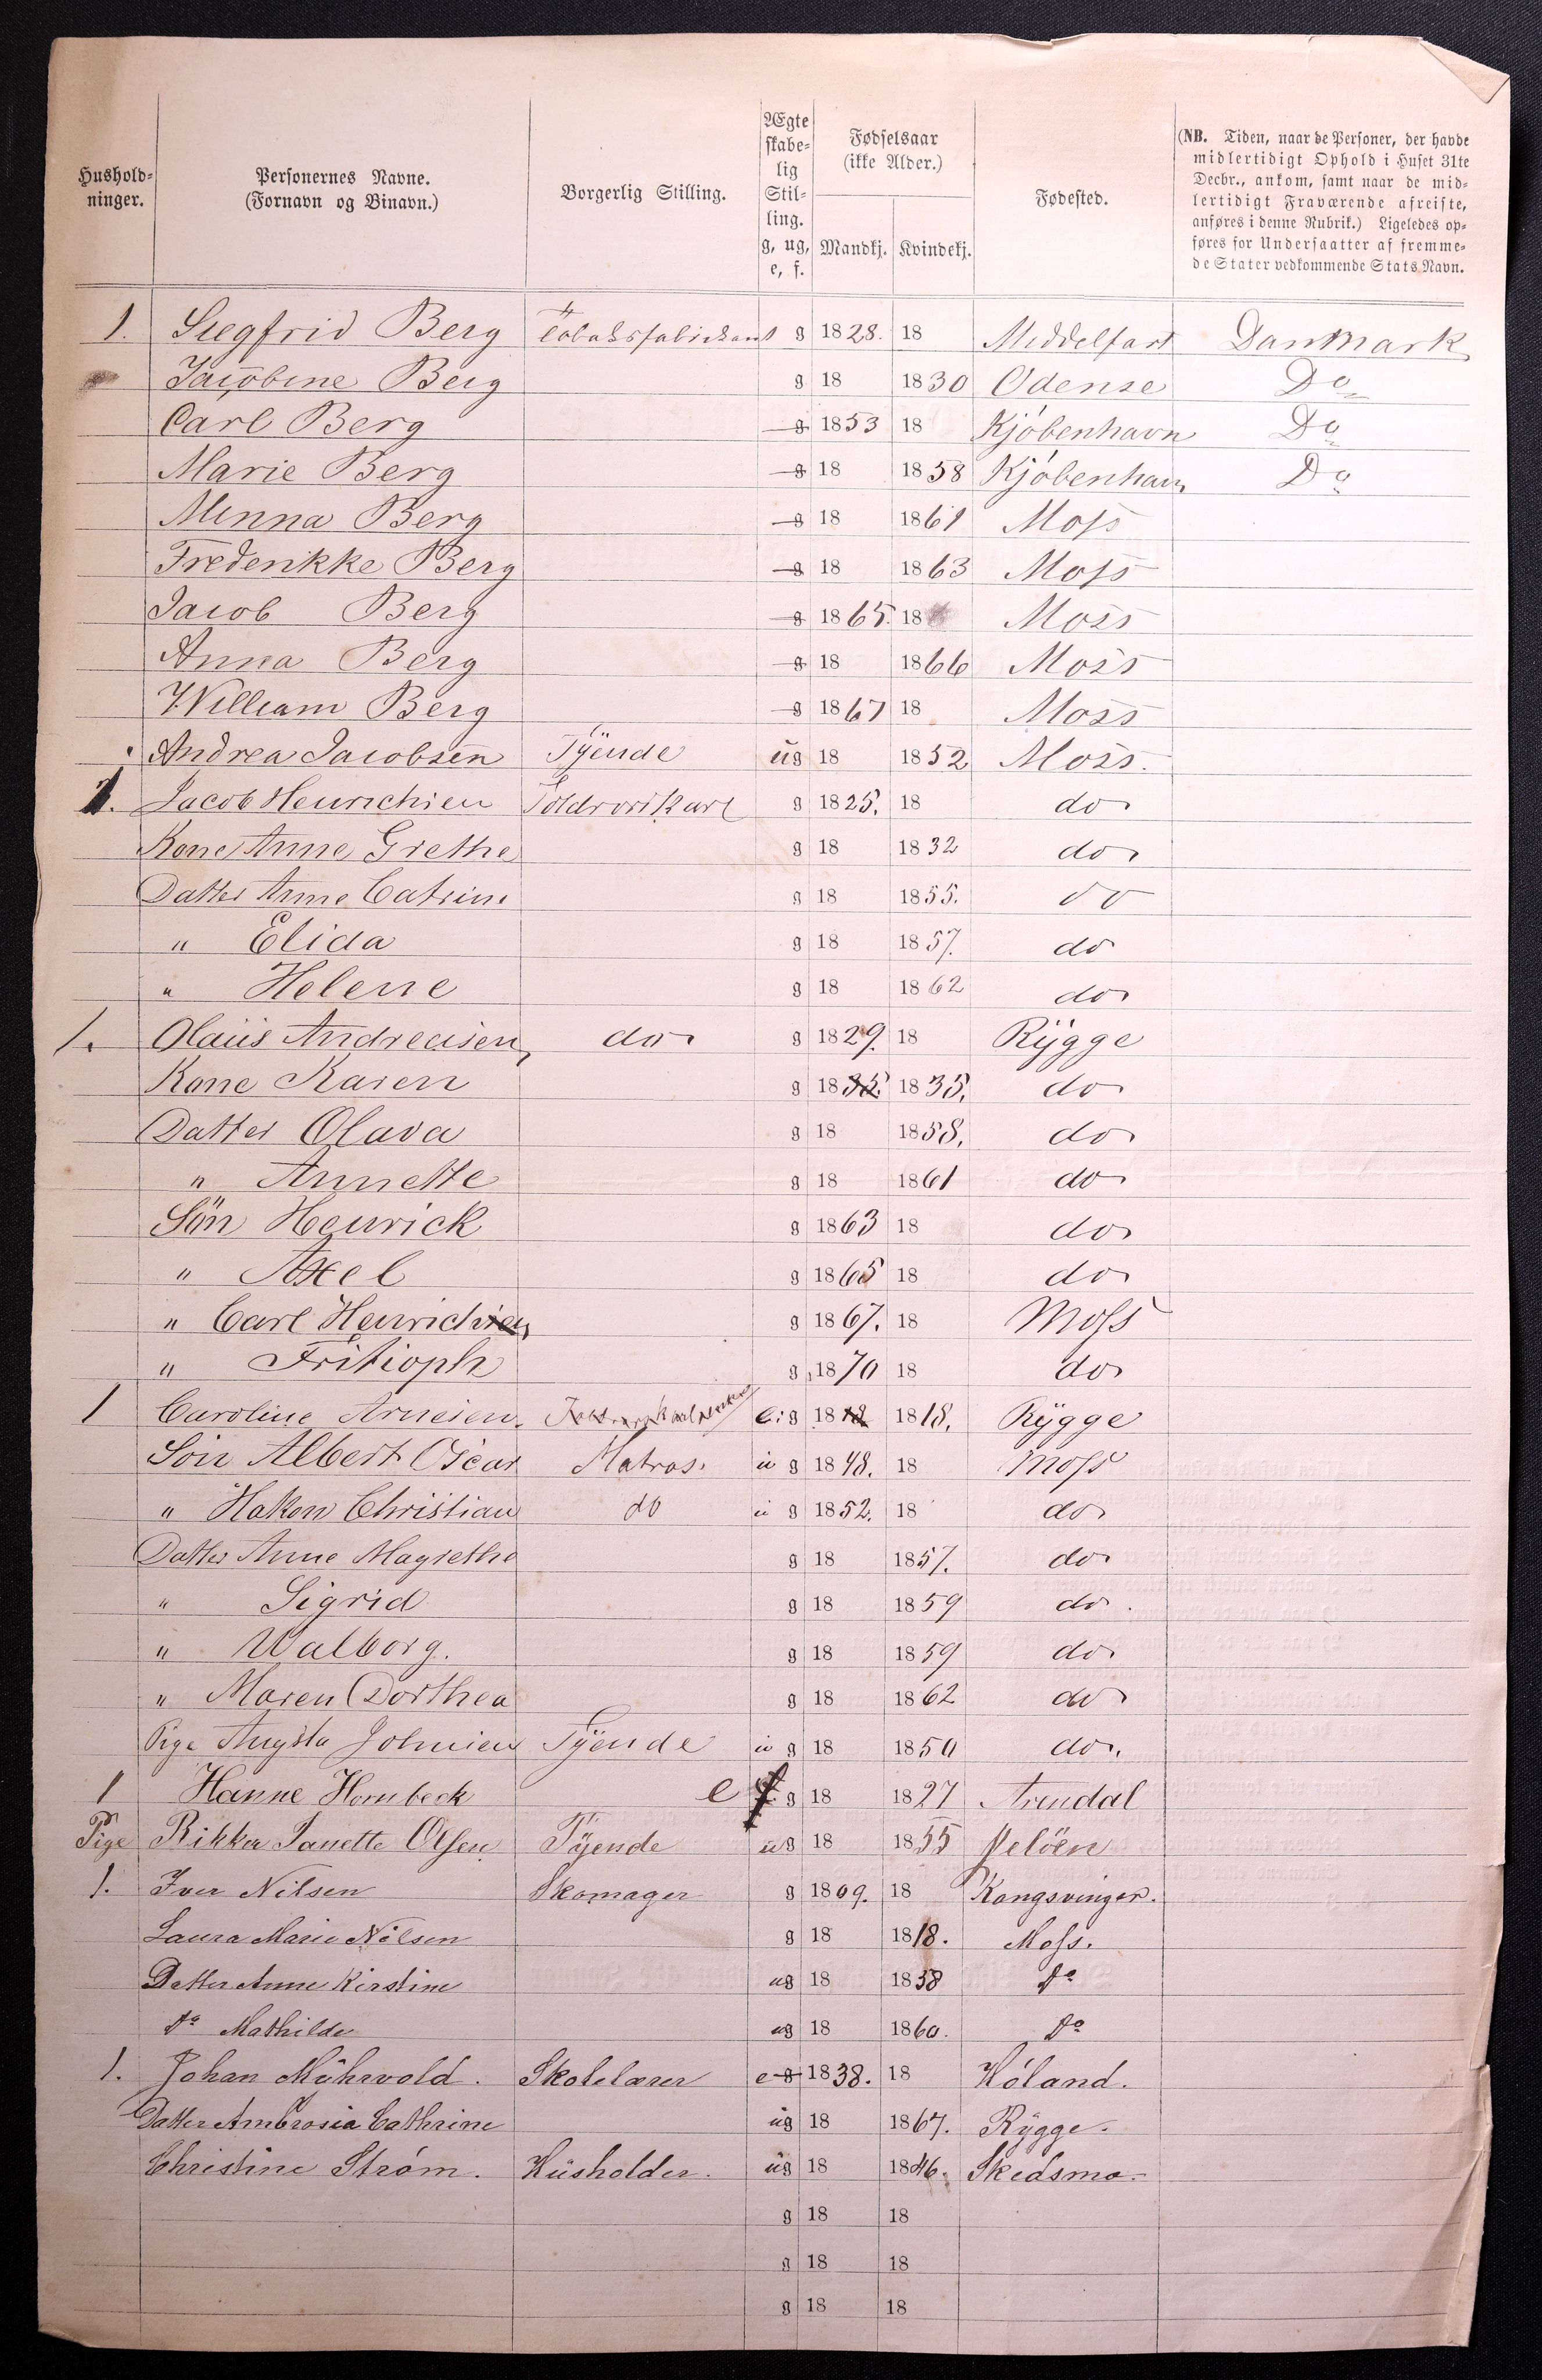 Hushold-
ninger.
Personernes Navne.
(Fornavn og Binavn.)
Borgerlig Stilling.
Ægte
skabe-
lig
Stil-
ling.
g, ug,
e, f.
Fødselsaar
(ikke Alder.)
Mandkj. Kvindekj.
Fødested.
(NB. Tiden, naar de Personer, der havde
midlertidigt Ophold i Huset 31te
Decbr., ankom, samt naar de mid-
lertidigt Fraværende afreiste,
anføres i denne Rubrik.) Ligeledes op-
føres for Undersaatter af fremme-
de Stater vedkommende Stats Navn.
1. Siegfrid Berg Tobaksfabrikant g 1828. 18 Middelfart Danmark
Jacobine Berg g 18 1830 Odense Do
Carl Berg g 1853 18 Kjóbenhavn Do
Marie Berg g 18 1858 Kjóbenhavn Do
Minna Berg g 18 1861 Moss
Frederikke Berg g 18 1863 Moss
Jacob Berg g 1865. 18 Moss
Anna Berg g 18 1866 Moss
William Berg g 1867 18 Moss
Andrea Jacobsen Tÿende ug 18 1852 Moss.
1. Jacob Henrichsen Toldrorskarl g 1825. 18 do
Kone Anne Grethe g 18 1832 do
Datter Anne Catrine g 18 1855. do
" Elida g 18 1857. do
" Helene g 18 1862 do
1. Olaus Andreasen, do g 1829. 18 Rÿgge
Kone Karen g 1835. 1835. do
Datter Olava g 18 1858. do
" Annette g 18 1861 do
Sön Henrick g 1863 18 do
" Axel g 1865 18 do
" Carl Henrichsen g 1867. 18 Moss
" Fritioph g 1870 18 do
1 Caroline Arnesen. e: g 1818 1818. Rÿgge
Sön Albert Oscar Matros. u g 1848. 18 Moss
" Hakon Christian do u g 1852. 18 do
Datter Anne Magrethe g 18 1857. do
" Sigrid g 18 1859 do.
" Walborg. g 18 1859 do
" Maren Dorthea g 18 1862 do
Pige Augsta Johnsen Tÿende u g 18 1850 do.
1 Hanne Hornbeck e f. g 18 1827 Arendal
Pige Rikka Janette Olsen Tÿende ug 18 1855 Jelöen
1. Iver Nilsen Skomager g 1809. 18 Kongsvinger.
Laura Marie Nilsen g 18 1818. Moss.
Datter Anne Kirstine ug 18 1858 Do
Do Mathilde ug 18 1860. Do
1. Johan Möhrvold. Skolelærer e g 1838. 18 Hóland.
Datter Ambrosia Cathrine ug 18 1867. Rÿgge.
Christine Strøm. Husholder. ug 18 1846. Skedsmo.
g 18 18
g 18 18
g 18 18